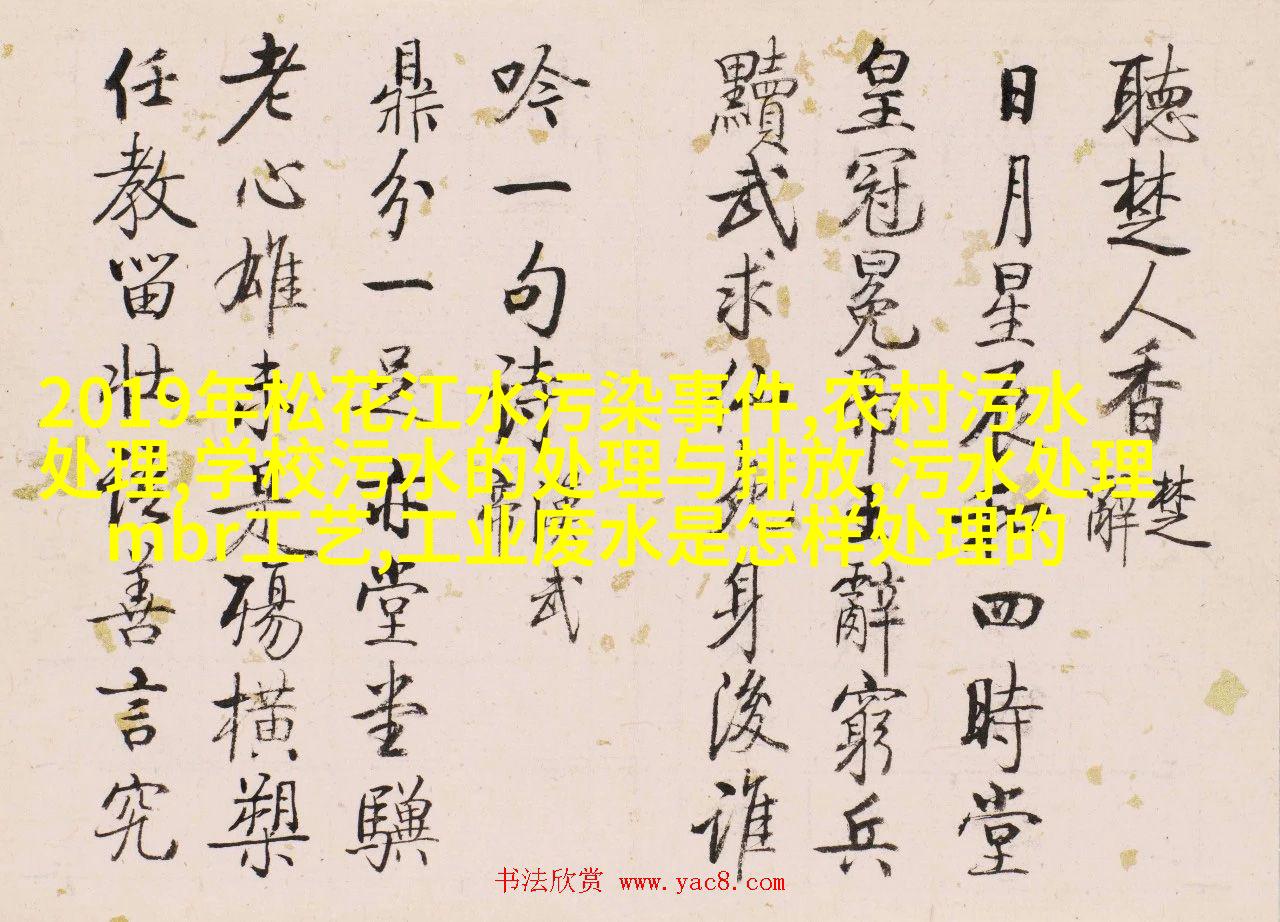 聽楚人香
楚辭
日月星辰和四時堂
皇冠冕帝王辭窮兵
黷武求仙身後誰
吟一句詩
漢武帝
鼎分一足亦堂堂驥
老心雄是殤橫槊
任教留壯語善言究
2019年松花江水污染事件,农村污水
处理,学校污水的处理与排放,污水处理
mbr工艺,工业废水是怎样处理的
书法欣赏 www.yac8.com